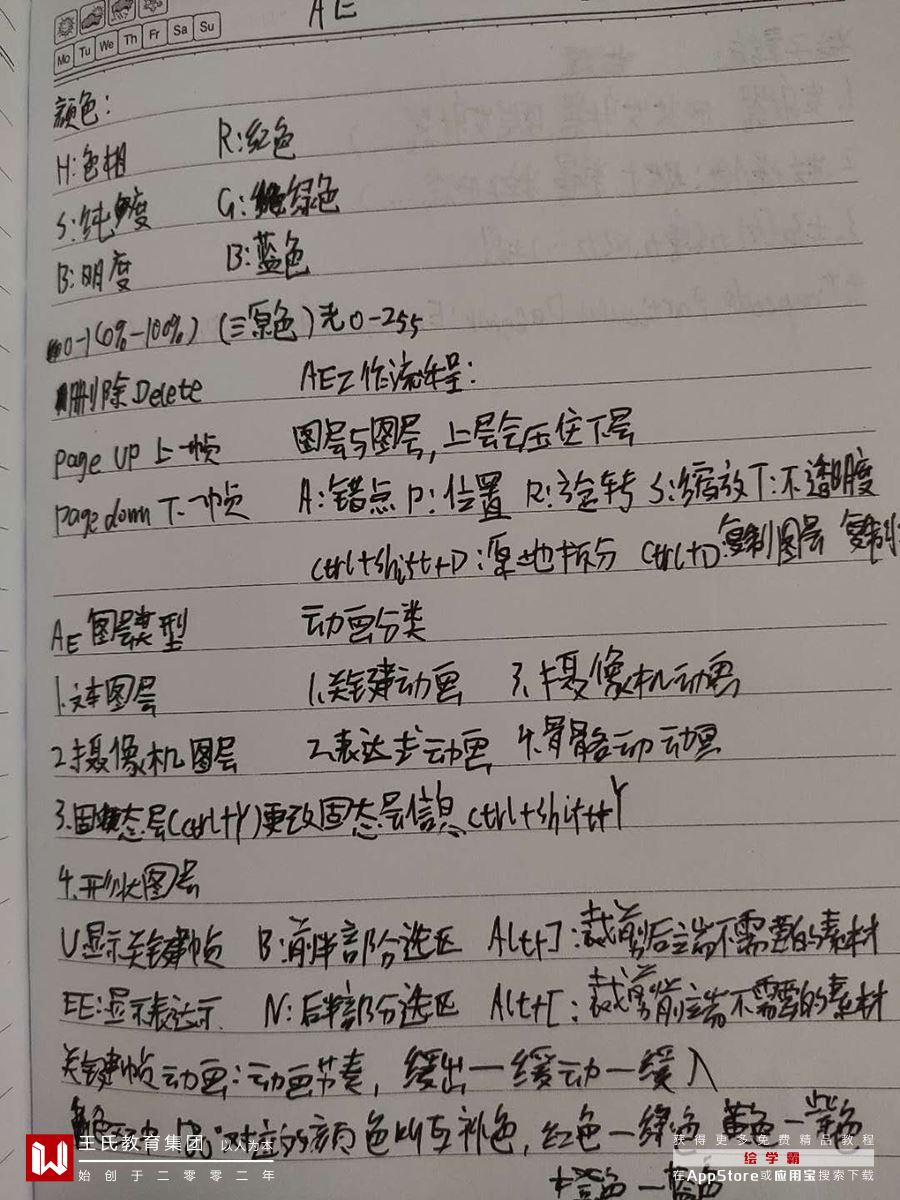 AE
Mo Tu We Th Fr Sa Su
颜色:
H:色相 R:红色
S:纯度 G:绿色
B:明度 B:蓝色
0-1(0%-100%) (三原色)光0-255
删除Delete AE工作流程:
page up 上一帧 图层与图层,上层会压住下层
page down 下一帧 A:错点 P:位置 R:旋转 S:缩放 T:不透明度
ctrl+shift+D:原地拆分 ctrl+D:复制图层 复制
AE图层类型 动画分类
1.文本图层 1.关键动画 3.摄像机动画
2.摄像机图层 2.表达式动画 4.骨骼动动画
3.固态层(ctrl+Y)更改固态层信息ctrl+shift+Y
4.形状图层
U显示关键帧 B:前半部分选区 Alt+]:裁剪后端不需要的素材
EE:显示表达示 N:后半部分选区 Alt+[:裁剪前端不需要的素材
关键帧动画:动画节奏,缓出一缓动一缓入
的颜色叫互补色,红色一绿色 黄色一紫色
橙色一蓝色
王氏教育集团 以人为本
始创于二零零二年
获得更多免费精品教程
绘学霸
在AppStore或应用宝搜索下载